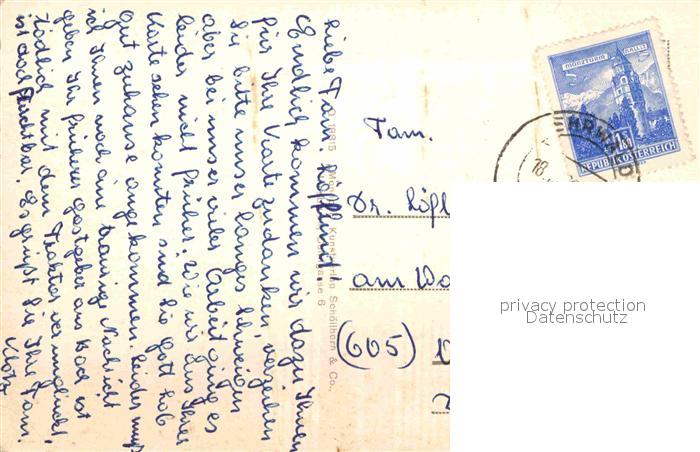 Liebe Fam. Löffler!
Endlich kommen wir dazu Ihnen
für Ihre Karte zu danken, verzeihen
Sie bitte unser langes Schweigen
aber bei unser vieler Arbeit ging es
leider nicht früher. Wie wir aus Ihrer
Karte sehen konnten sind Sie Gott lob
gut zuhause angekommen. Leider muß
ich Ihnen noch eine traurige Nachricht
geben Ihr früherer Gastgeber aus Bach ist
tödlich mit dem Traktor verunglückt,
ist das furchtbar. Es grüßt Sie Ihre Fam.
Klotz
Q 18815
Kunstverlag Schöllhorn & Co.,
MÜNZTURM HALL I.T.
S 1.80
REPUBLIK ÖSTERREICH
EHRWALD
18.
Fam.
Dr. Löffl
am Wa
(605)
privacy protection
Datenschutz